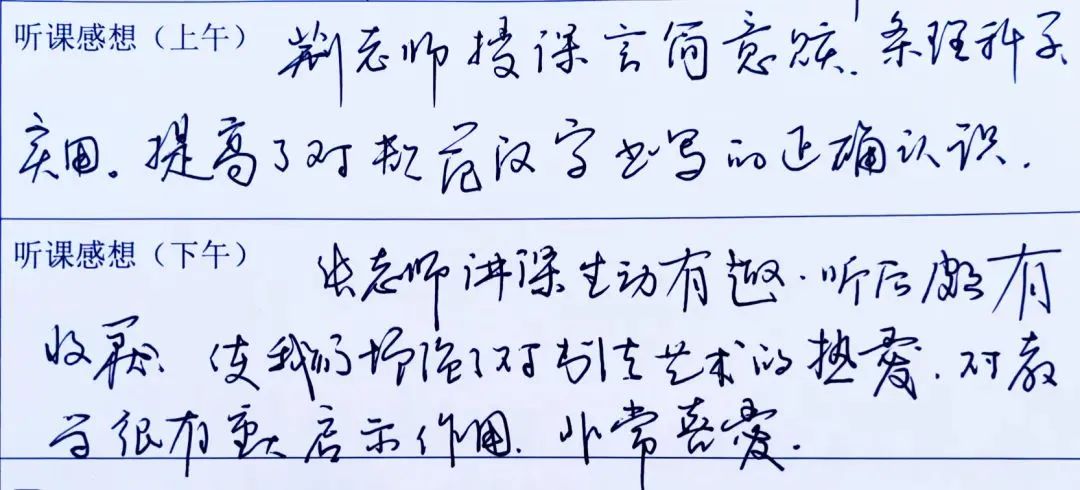 听课感想（上午） 荆老师授课言简意赅.条理科学
实用。提高了对规范汉字书写的正确认识.
听课感想（下午） 张老师讲课生动有趣.听后颇有
收获.使我们增强了对书法艺术的热爱.对教
学很有重大启示作用.非常喜爱.